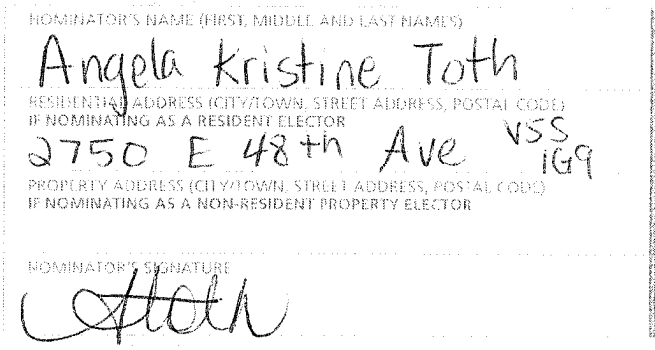 NOMINATOR'S NAME (FIRST, MIDDLE AND LAST NAMES)
Angela Kristine Toth
RESIDENTIAL ADDRESS (CITY/TOWN, STREET ADDRESS, POSTAL CODE)
IF NOMINATING AS A RESIDENT ELECTOR
2750 E 48th Ave V5S 1G9
PROPERTY ADDRESS (CITY/TOWN, STREET ADDRESS, POSTAL CODE)
IF NOMINATING AS A NON-RESIDENT PROPERTY ELECTOR
NOMINATOR'S SIGNATURE
AToth